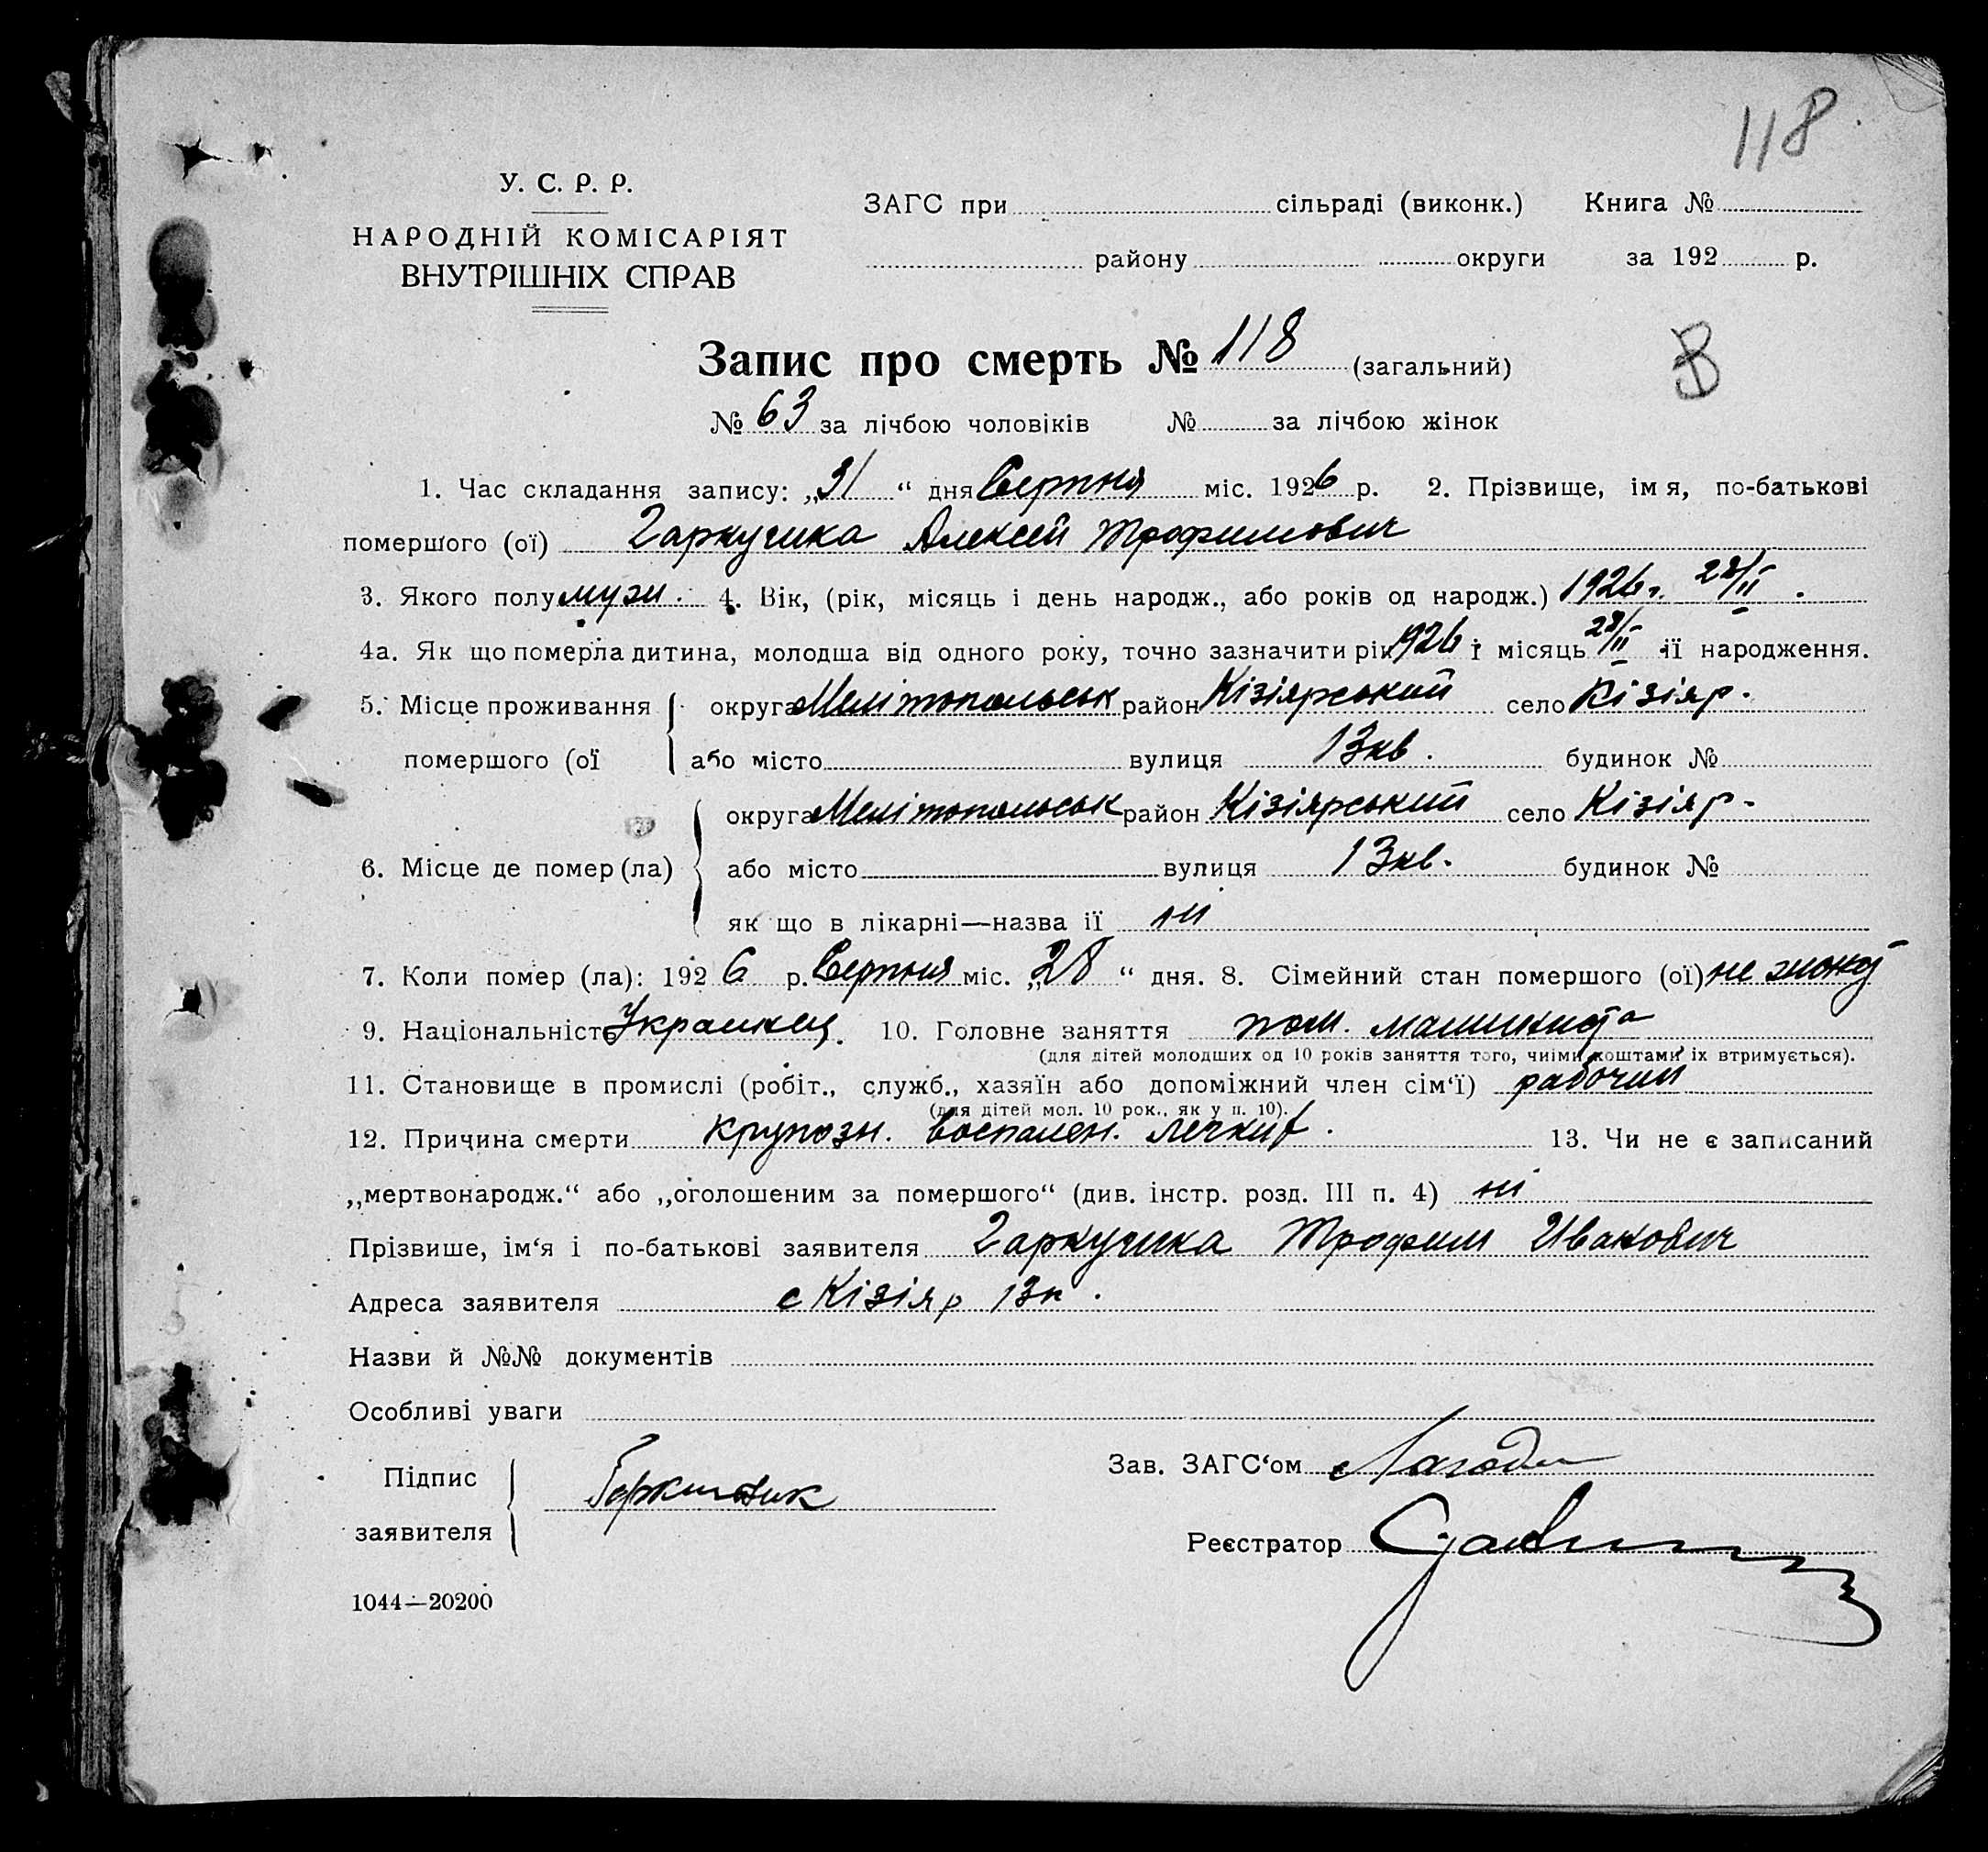 118
У. С. Р. Р.
НАРОДНІЙ КОМІСАРІЯТ
ВНУТРІШНІХ СПРАВ
ЗАГС при сільраді (виконк.) Книга №
району округи за 192 р.
Запис про смерть № 118 (загальний)
В
№ 63 за лічбою чоловіків № за лічбою жінок
1. Час складання запису: „31“ дня Серпня міс. 1926 р. 2. Прізвище, імя, по-батькові
помершого (ої) Алексей Трофимович
3. Якого полу муж. 4. Вік, (рік, місяць і день народж., або років од народж.) 1926 г. 28/II.
4а. Як що померла дитина, молодша від одного року, точно зазначити рік 1926 і місяць 28/II її народження.
5. Місце проживання округа Мелітопольськ район Кізіярський село Кізіяр.
помершого (ої або місто вулиця 13кв. будинок №
округа Мелітопольськ район Кізіярський село Кізіяр.
6. Місце де помер (ла) або місто вулиця 13кв. будинок №
як що в лікарні—назва ії ні
7. Коли помер (ла): 1926 р. Серпня міс. „28“ дня. 8. Сімейний стан помершого (ої) не
9. Національність Украинец. 10. Головне заняття пом. машиниста
(для дітей молодших од 10 років заняття того, чиїми коштами їх втримується).
11. Становище в промислі (робіт., служб., хазяїн або допоміжний член сім‘ї) рабочий
(для дітей мол. 10 рок., як у п. 10).
12. Причина смерти крупозн. воспален. легких. 13. Чи не є записаний
„мертвонародж.“ або „оголошеним за помершого“ (див. інстр. розд. III п. 4) ні
Прізвише, ім‘я і по-батькові заявителя Трофим Иванович
Адреса заявителя с Кізіяр 13к.
Назви й №№ документів
Особливі уваги
Підпис
заявителя
Зав. ЗАГС‘ом
Реєстратор
1044—20200